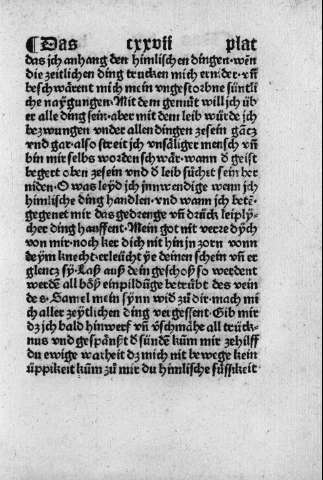 ¶Das cxxvii plat
das jch anhang den himlischen dingen. wen̄
die zeitlichen ding trucken mich ernider. vn̄
beschwärent mich mein vngestorbne süntli
che naygungen. Mit dem gemüt will ich üb
er alle ding sein. aber mit dem leib würde jch
bezwungen vnder allen dingen zesein gantz
vnd gar. also streit jch vnsäliger mensch vn̄
bin mir selbs worden schwär. wann d geist
begert oben zesein vn̄ d leib sůcht sein her
niden. O was leyd jch jnnwendige wenn jch
himlische ding handlen. vnd wann jch bete.
gegenet mir das gedrenge vn̄ drück leiply⸗
cher ding hauffent. Mein got nit verre dych
von mir. noch ker dich nit hin jn zorn vonn
deym knecht. erleücht ye deinen schein vn̄ er
glentz sy. Laß auß dein geschoß so werdent
werde all böß einpildung betrübt des vein
des. Samel mein synn wid zů dir. mach mi
ch aller zeytlichen ding vergessent. Gib mir
dz jch bald hinwerf vn̄ v̄schmähe all trück⸗
nus vnd gespänst d sünde kum mir zehilff
du ewige warheit dz mich nit bewege kein
üppikeit kum zů mir du himlische süssikeit